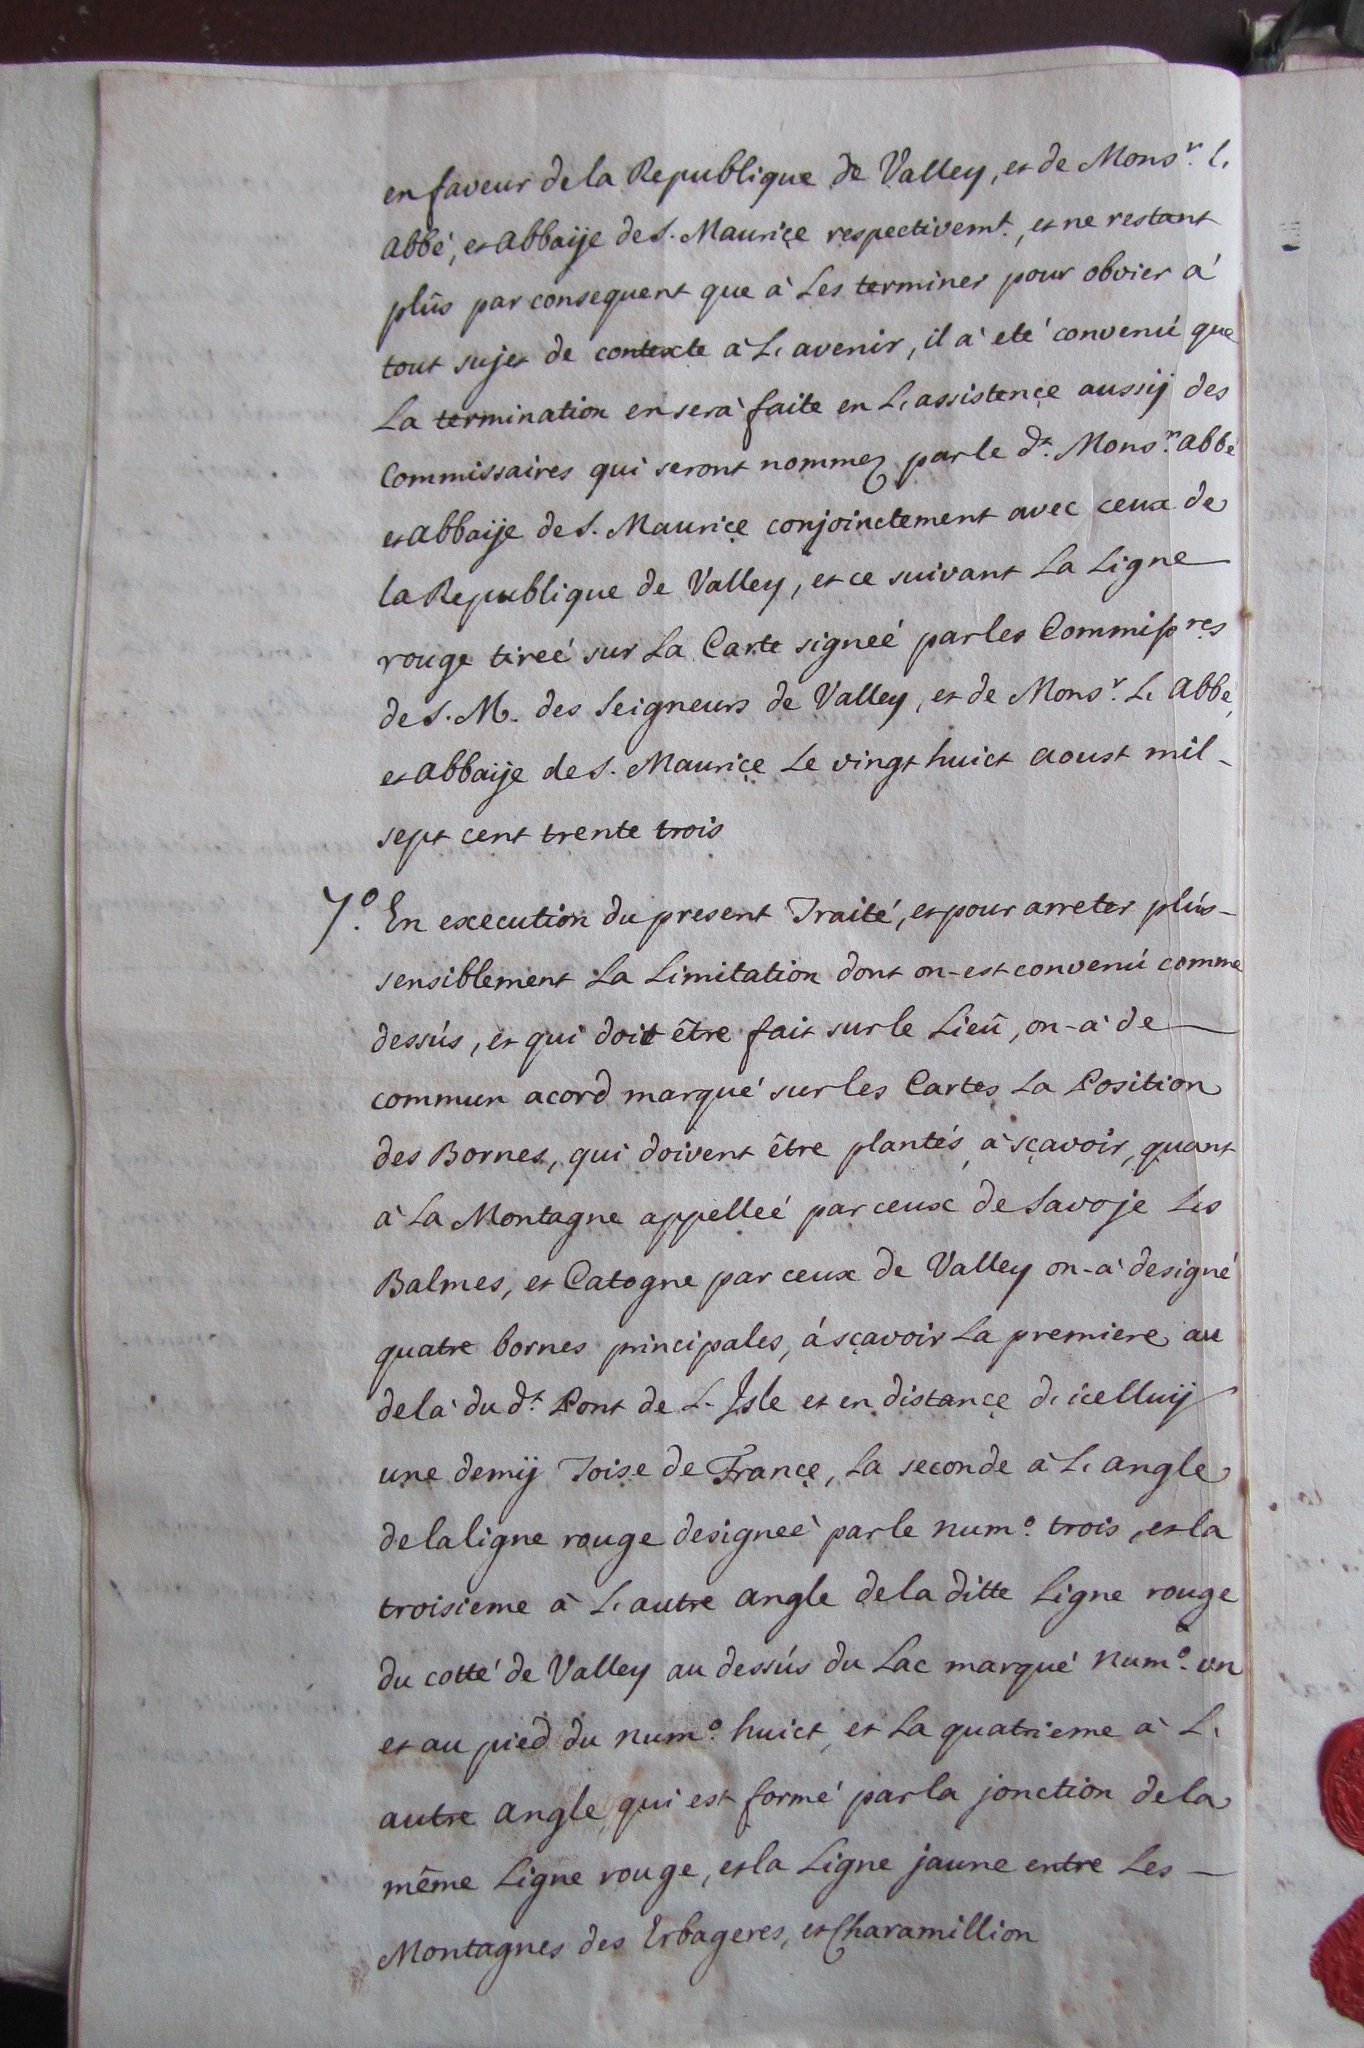 en faveur de la Republique de Valley, et de Monsr. L.
Abbé, et Abbaije de S. Maurice respectivemt., et ne restant
plûs par consequent que à Les terminer pour obvier à
tout sujet de contexte à L. avenir, il à eté convenú que
La termination en serà faite en L. assistençe aussij des
Commissaires qui seront nommez par le dt. Monsr. Abbé
et Abbaije de S. Mauriçe conjoinctement avec ceux de
la Republique de Valley, et ce suivant La Ligne
rouge tireé sur La Carte signeé par les Commissres
de S. M. des Seigneurs de Valley, et de Monsr. L. Abbé,
et Abbaije de S. Mauriçe Le vingt huict Aoust mil-
sept cent trente trois
7o. En execution du present Traité, et pour arreter plús-
sensiblement La Limitation dont on-est convenú comme
dessús, et qui doit être fait sur le Lieû, on-à de
commun acord marqué sur les Cartes La Position
des Bornes, qui doivent être plantés, à sçavoir, quant
à La Montagne appelleé par ceux de Savoje Les
Balmes, et Catogne par ceux de Valley on-à designé
quatre bornes principales, á sçavoir La premiere au
delà du dt. Pont de L. Isle et en distançe d. icelluij
une demij Toise de Françe, La seconde à L. angle
de la ligne rouge designeé par le numo. trois, et la
troisieme à L. autre angle de la ditte Ligne rouge
du cotté de Valley au dessús du Lac marqué numo. un
et au pied du numo. huict, et La quatrieme à L.
autre angle, qui est formé par la jonction de la
même Ligne rouge, et la Ligne jaune entre Les-
Montagnes des Erbageres, et Charamillion